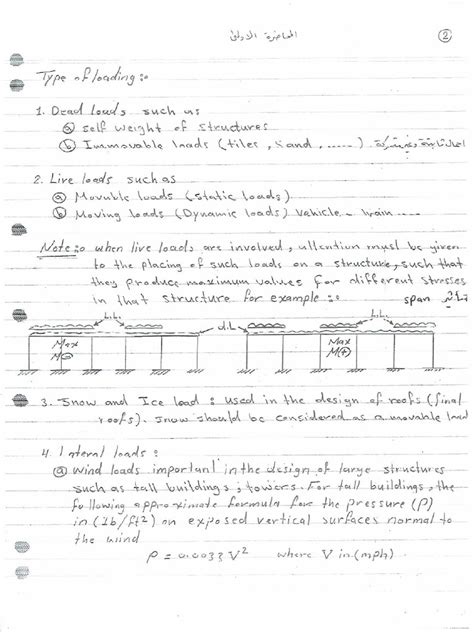 المحاضرة الاولى
2
Type of loading :-
1. Dead loads such as
a self weight of structures
b Immovable loads (tiles, sand, ......)
2. Live loads such as
a Movable loads (static loads)
b Moving loads (Dynamic loads) Vehicle - train ....
Note :- when live loads are involved, attention must be given
to the placing of such loads on a structure, such that
they produce maximum values for different stresses
in that structure for example :- span
L.L. D.L. L.L.
Max M(-) Max M(+)
3. Snow and Ice load : used in the design of roofs (final
roofs). Snow should be considered as a movable load
4. Lateral loads :
a Wind loads important in the design of large structures
such as tall buildings, towers. For tall buildings, the
following approximate formula for the pressure (P)
in (Ib/ft2) on exposed vertical surfaces normal to
the wind
P = 0.0033 V² where V in (mph)